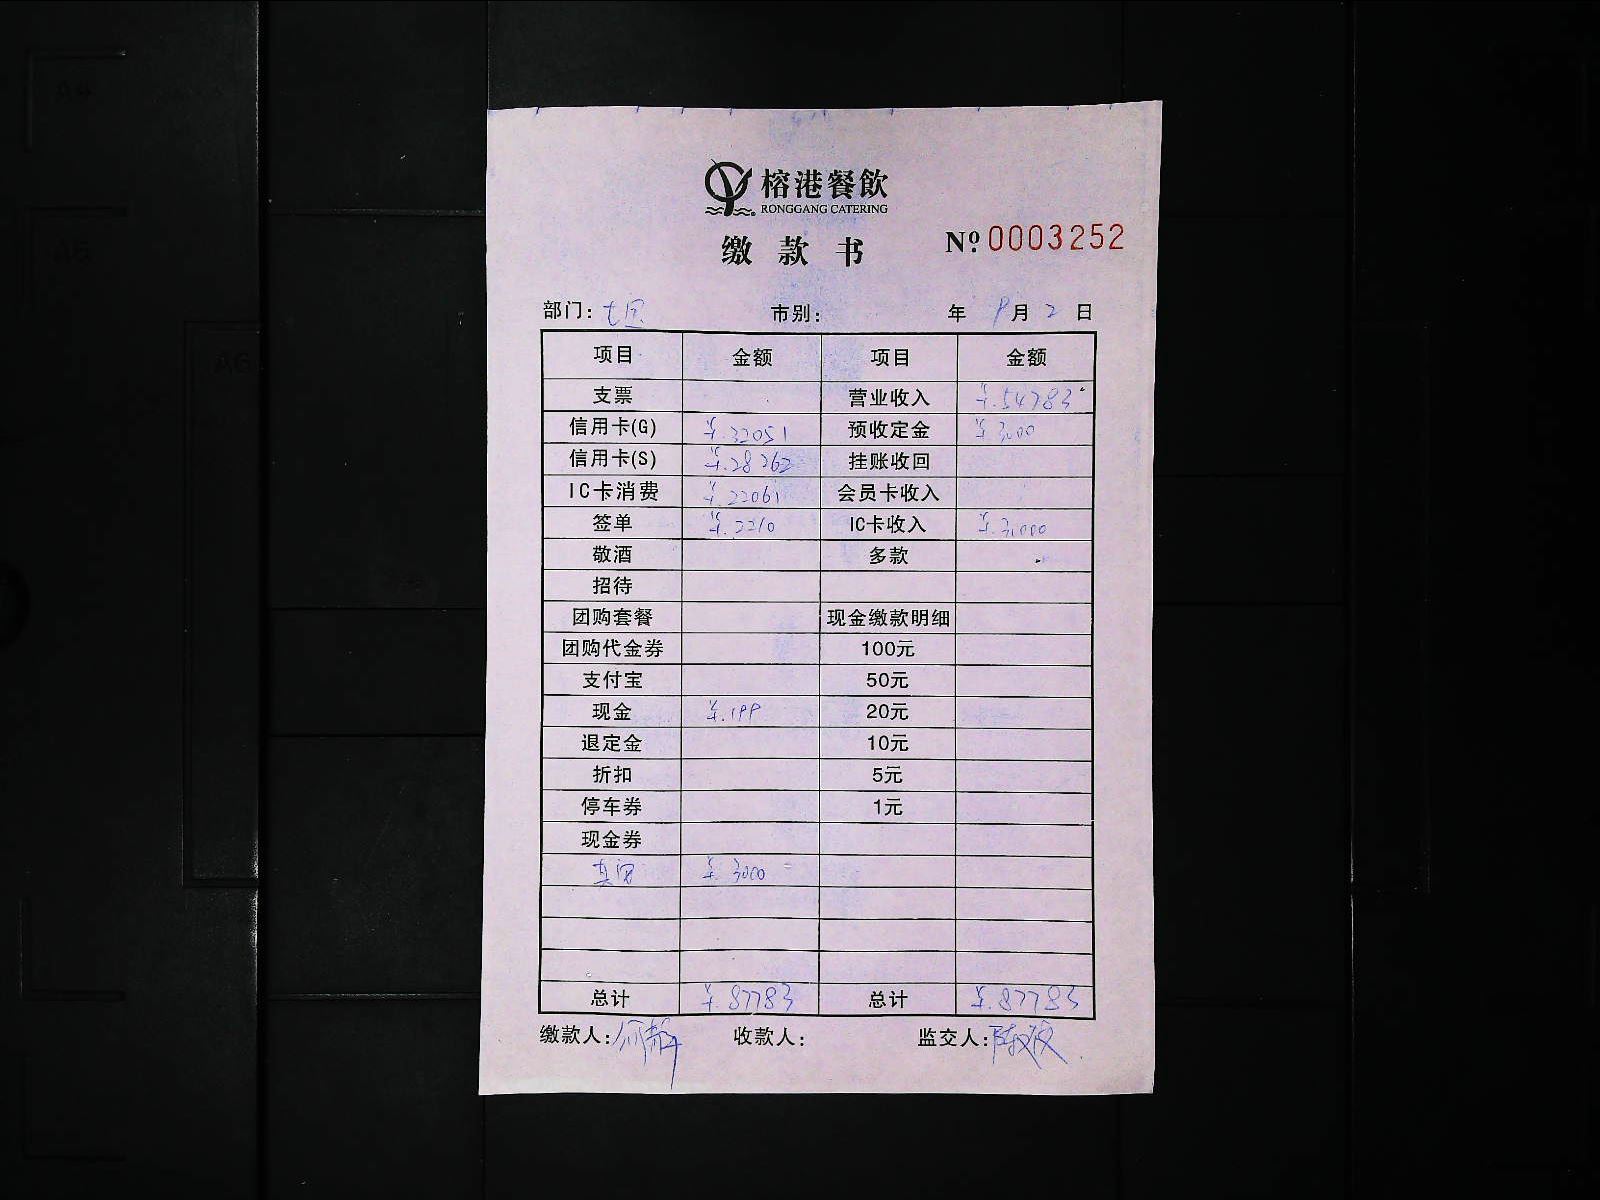 榕港餐飲
RONGGANG CATERING
缴款书 Nº 0003252
部门: 七区 市别: 年 9月2日
项目 金额 项目 金额
支票 营业收入 ¥.54783
信用卡(G) ¥.32051 预收定金 ¥.3000
信用卡(S) ¥.28262 挂账收回
IC卡消费 ¥.22061 会员卡收入
签单 ¥.2210 IC卡收入
敬酒 多款
招待
团购套餐 现金缴款明细
团购代金券 100元
支付宝 50元
现金 ¥.199 20元
退定金 10元
折扣 5元
停车券 1元
现金券
¥.3000
总计 ¥.87783 总计 ¥.87783
缴款人: 收款人: 监交人: